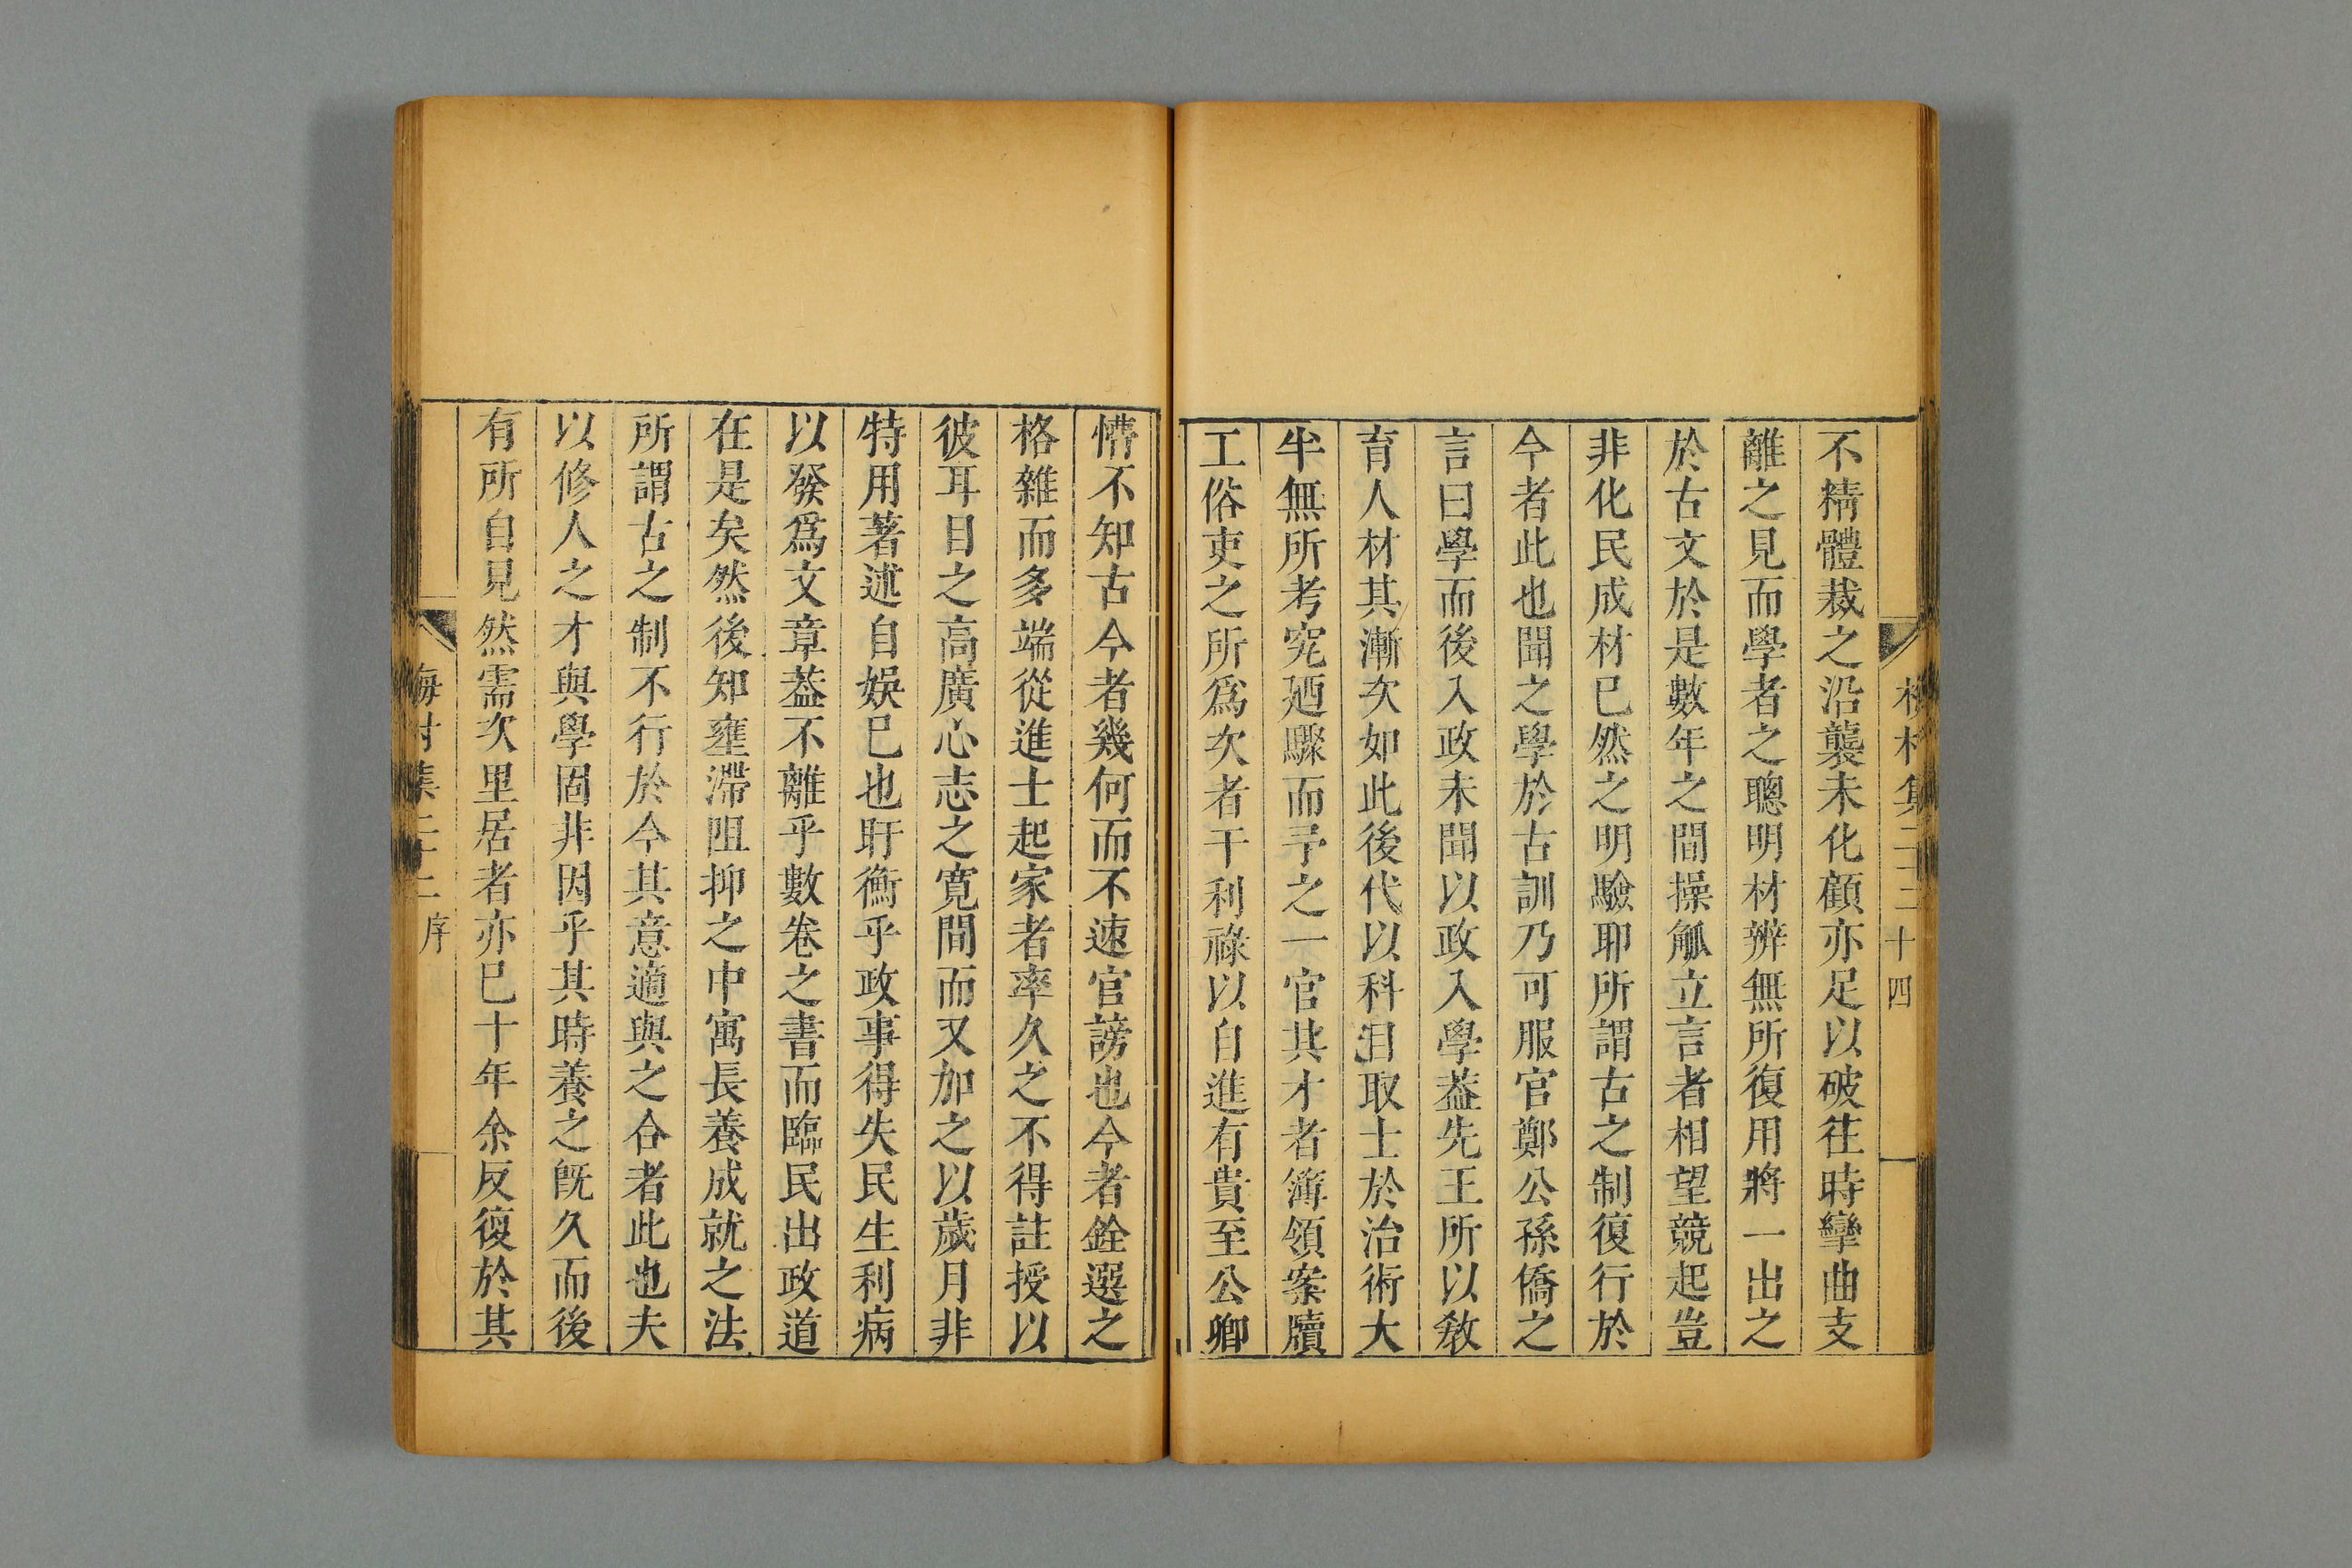 梅村集二十二 十四
不精體裁之沿襲未化顧亦足以破往時孿曲支
離之見而學者之聰明材辨無所復用將一出之
於古文於是數年之間操觚立言者相望競起豈
非化民成材已然之明驗耶所謂古之制復行於
今者此也聞之學於古訓乃可服官鄭公孫僑之
言曰學而後入政未聞以政入學葢先王所以敎
育人材其漸次如此後代以科目取士於治術大
半無所考究廼驟而予之一官其才者簿領案牘
工俗吏之所爲次者干利祿以自進有貴至公卿
懵不知古今者幾何而不速官謗也今者銓選之
格雜而多端從進士起家者率久之不得註授以
彼耳目之高廣心志之寬閒而又加之以歲月非
特用著述自娛已也盱衡乎政事得失民生利病
以發爲文章葢不離乎數卷之書而臨民出政道
在是矣然後知壅滯阻抑之中寓長養成就之法
所謂古之制不行於今其意適與之合者此也夫
以修人之才與學固非因乎其時養之旣久而後
有所自見然需次里居者亦已十年余反復於其
梅村集二十二序